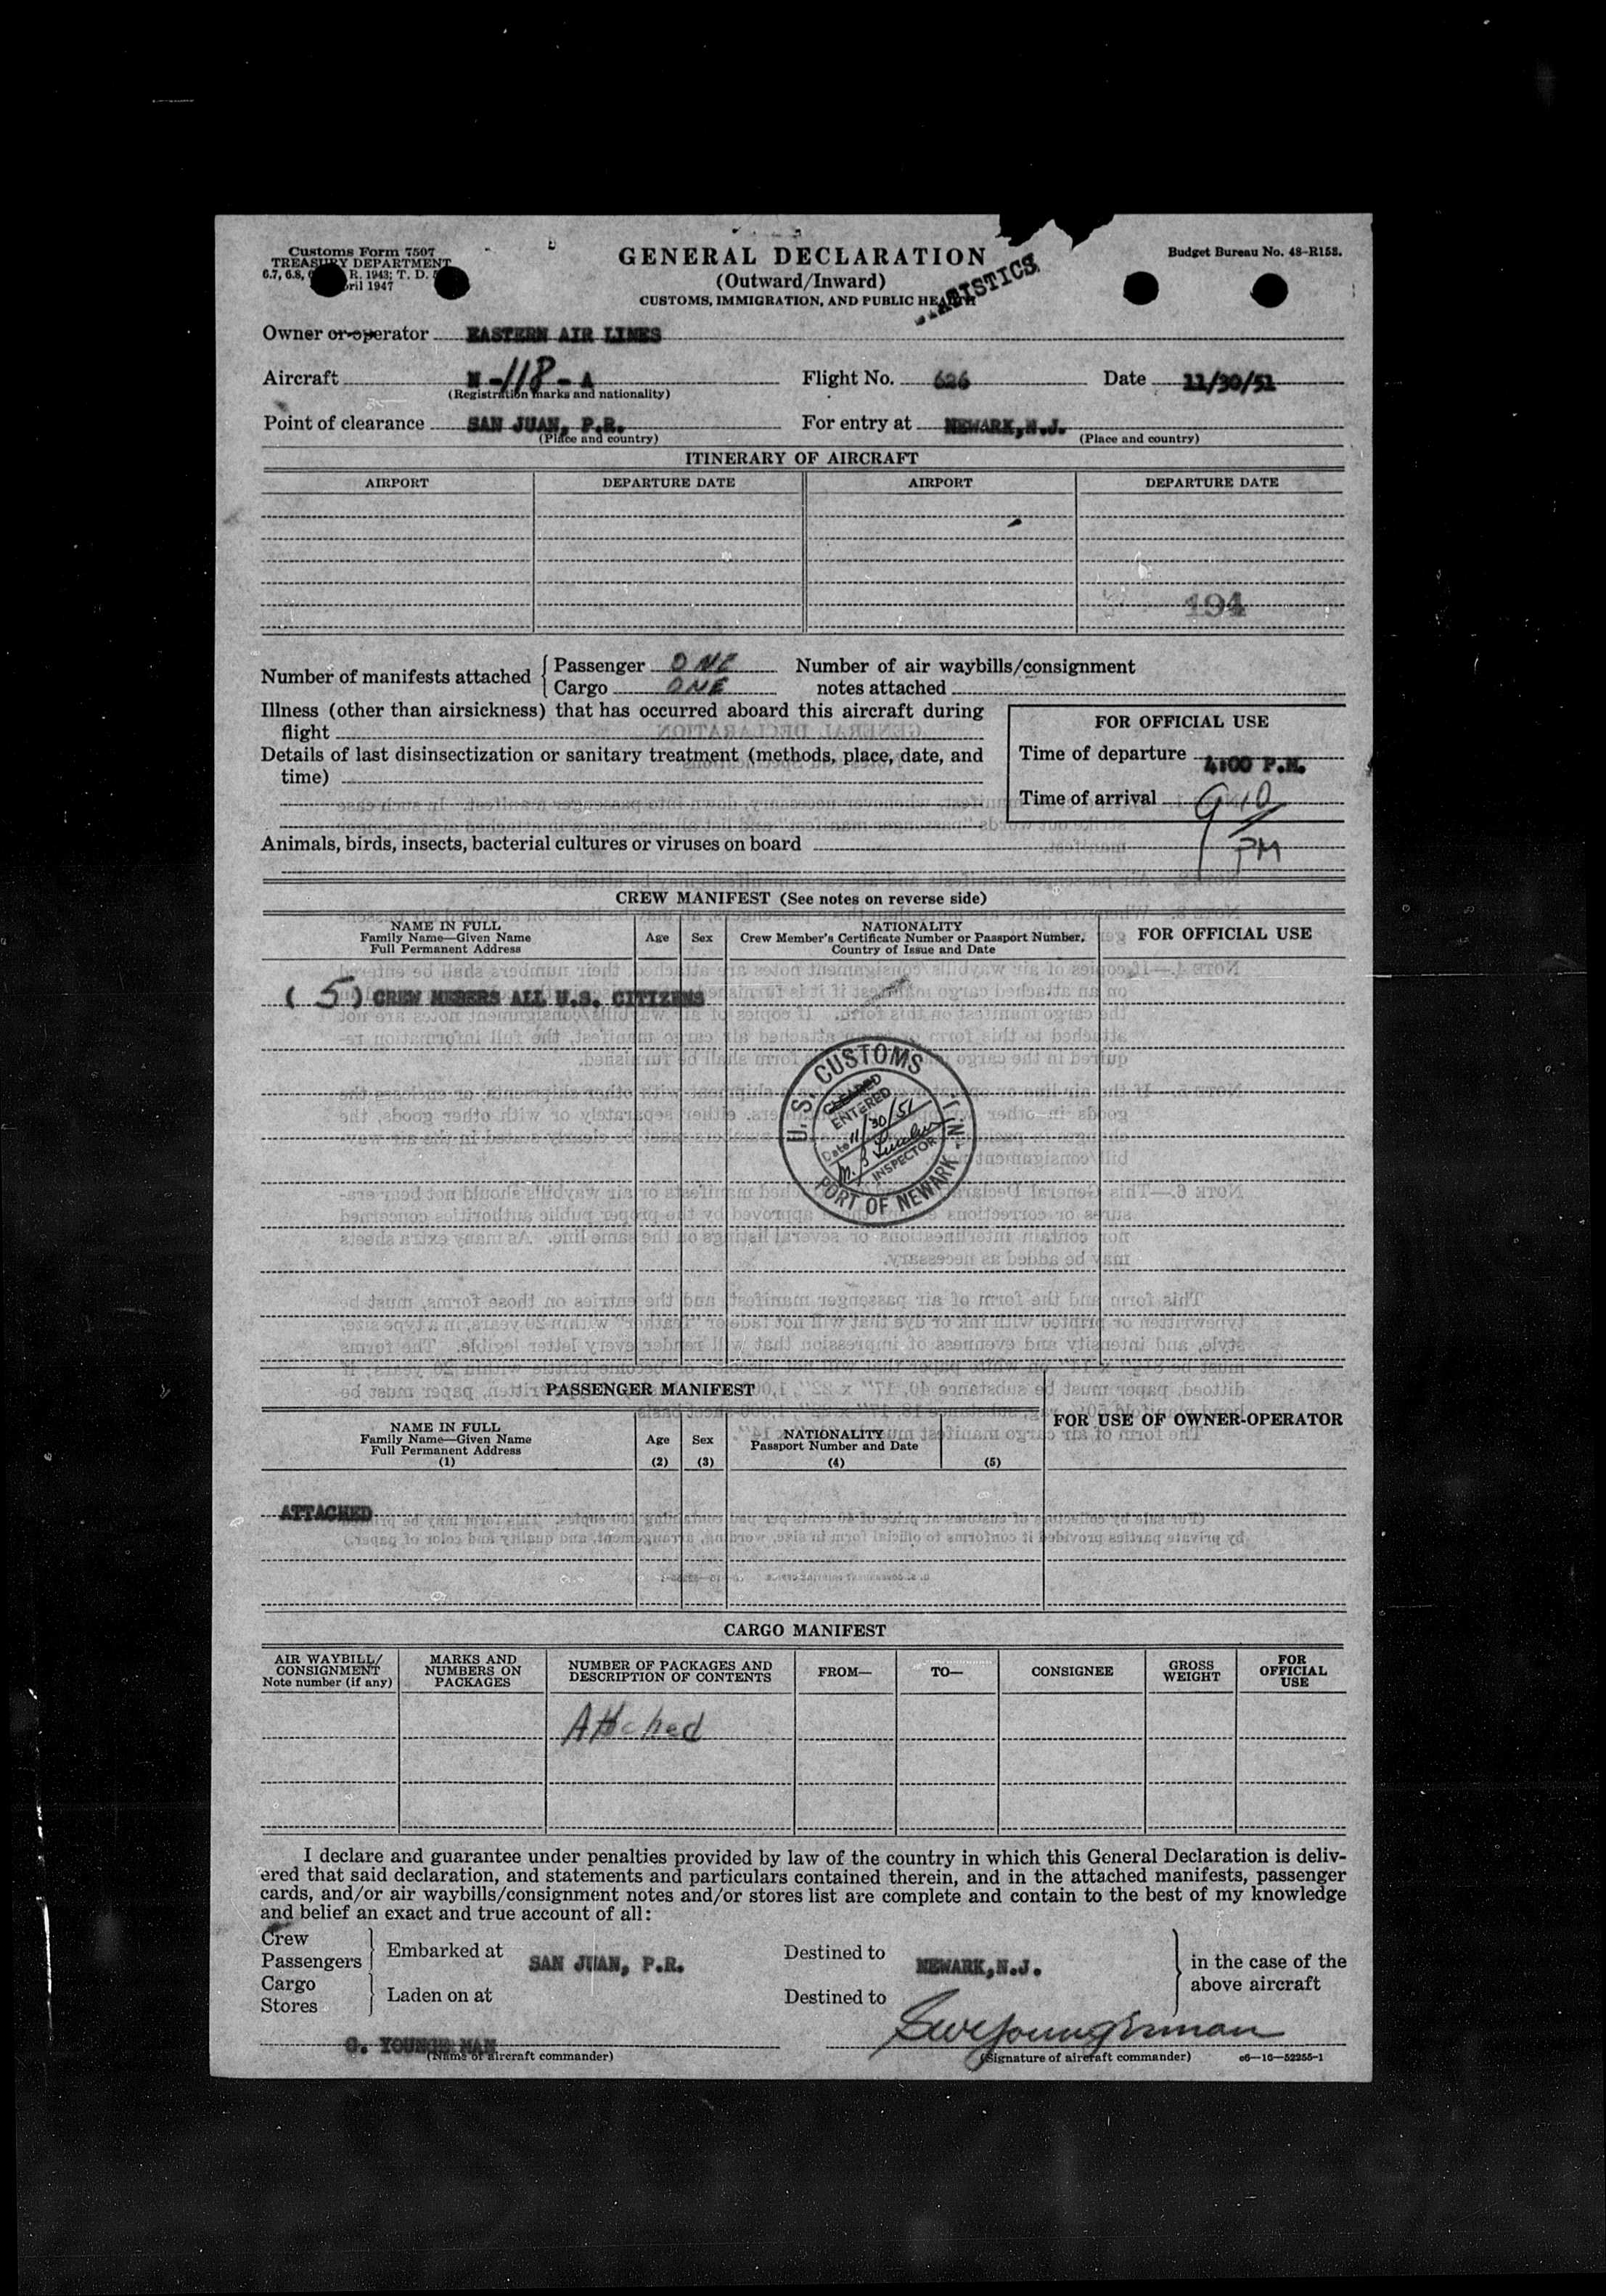 Customs Form 7507
TREASURY DEPARTMENT
6.7, 6.8, R. 1943; T. D.
ril 1947
GENERAL DECLARATION
(Outward/Inward)
CUSTOMS, IMMIGRATION, AND PUBLIC HEALTH
Budget Bureau No. 48-R153.
Owner or operator EASTERN AIR LINES
Aircraft N -118- A Flight No. 626 Date 11/30/51
(Registration marks and nationality)
Point of clearance SAN JUAN, P.R. For entry at NEWARK,N.J.
(Place and country) (Place and country)
ITINERARY OF AIRCRAFT
AIRPORT DEPARTURE DATE AIRPORT DEPARTURE DATE
194
Number of manifests attached Passenger ONE Number of air waybills/consignment
Cargo ONE notes attached
Illness (other than airsickness) that has occurred aboard this aircraft during
flight
Details of last disinsectization or sanitary treatment (methods, place, date, and
time)
FOR OFFICIAL USE
Time of departure 4:00 P.M.
Time of arrival 910
PM
Animals, birds, insects, bacterial cultures or viruses on board
CREW MANIFEST (See notes on reverse side)
NAME IN FULL
Family Name—Given Name
Full Permanent Address
Age Sex
NATIONALITY
Crew Member's Certificate Number or Passport Number,
Country of Issue and Date
FOR OFFICIAL USE
( 5 ) CREW MEBERS ALL U.S. CITIZENS
U. S. CUSTOMS
CLEARED
ENTERED
Date 11/30/51
INSPECTOR
PORT OF NEWARK N. J.
PASSENGER MANIFEST
NAME IN FULL
Family Name—Given Name
Full Permanent Address
(1)
Age
(2)
Sex
(3)
NATIONALITY
Passport Number and Date
(4) (5)
FOR USE OF OWNER-OPERATOR
ATTACHED
CARGO MANIFEST
AIR WAYBILL/
CONSIGNMENT
Note number (if any)
MARKS AND
NUMBERS ON
PACKAGES
NUMBER OF PACKAGES AND
DESCRIPTION OF CONTENTS
FROM— TO— CONSIGNEE
GROSS
WEIGHT
FOR
OFFICIAL
USE
Attched
I declare and guarantee under penalties provided by law of the country in which this General Declaration is deliv-
ered that said declaration, and statements and particulars contained therein, and in the attached manifests, passenger
cards, and/or air waybills/consignment notes and/or stores list are complete and contain to the best of my knowledge
and belief an exact and true account of all:
Crew
Passengers Embarked at SAN JUAN, P.R. Destined to NEWARK,N.J. in the case of the
Cargo above aircraft
Stores Laden on at Destined to
YOUNGE MAN
(Name of aircraft commander) (Signature of aircraft commander) c6—16—52255-1